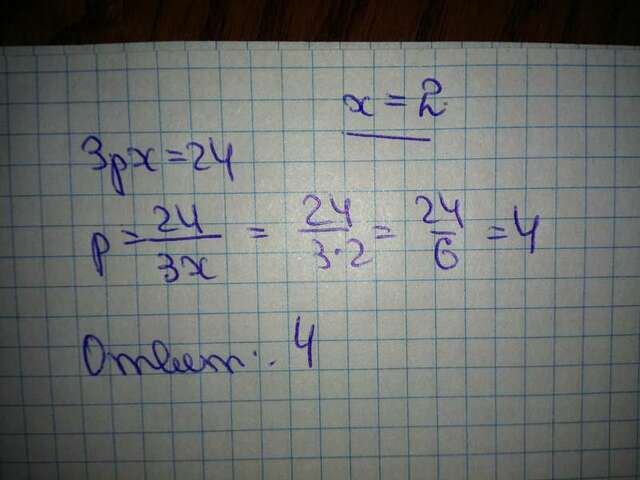 3px = 24    x = 2
p = 24/3x = 24/3·2 = 24/6 = 4
Ответ: 4